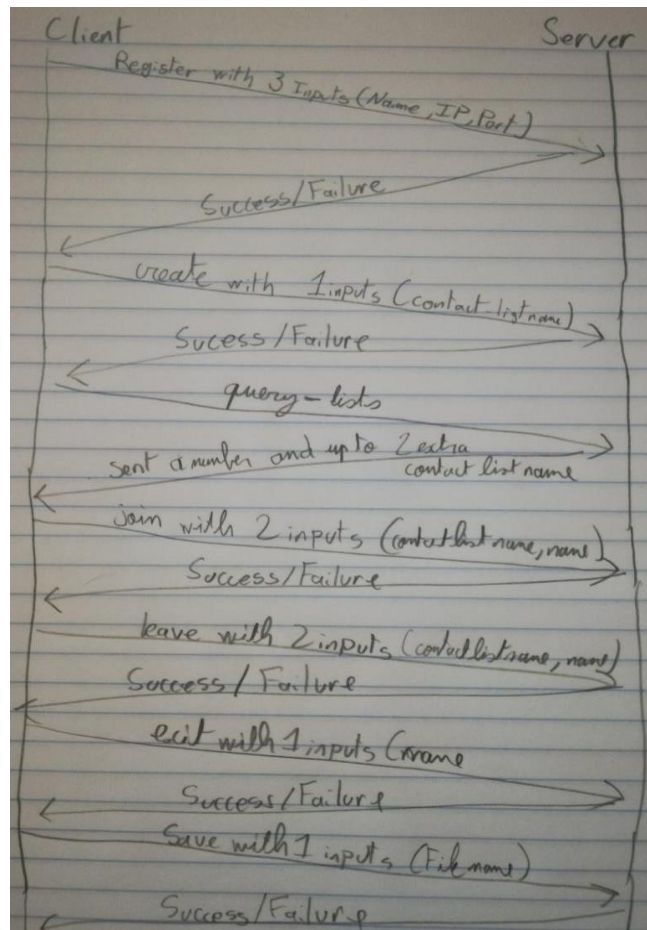 Client
Server
Register with 3 Inputs (Name, IP, Port)
Success/Failure
create with 1 inputs (contact-listname)
Sucess/Failure
query-lists
sent a number and up to 2 extra
contact list name
join with 2 inputs (contactlist name, name)
Success/Failure
leave with 2 inputs (contactlistname, name)
Success/Failure
exit with 1 inputs (name
Success/Failure
Save with 1 inputs (File name)
Success/Failure